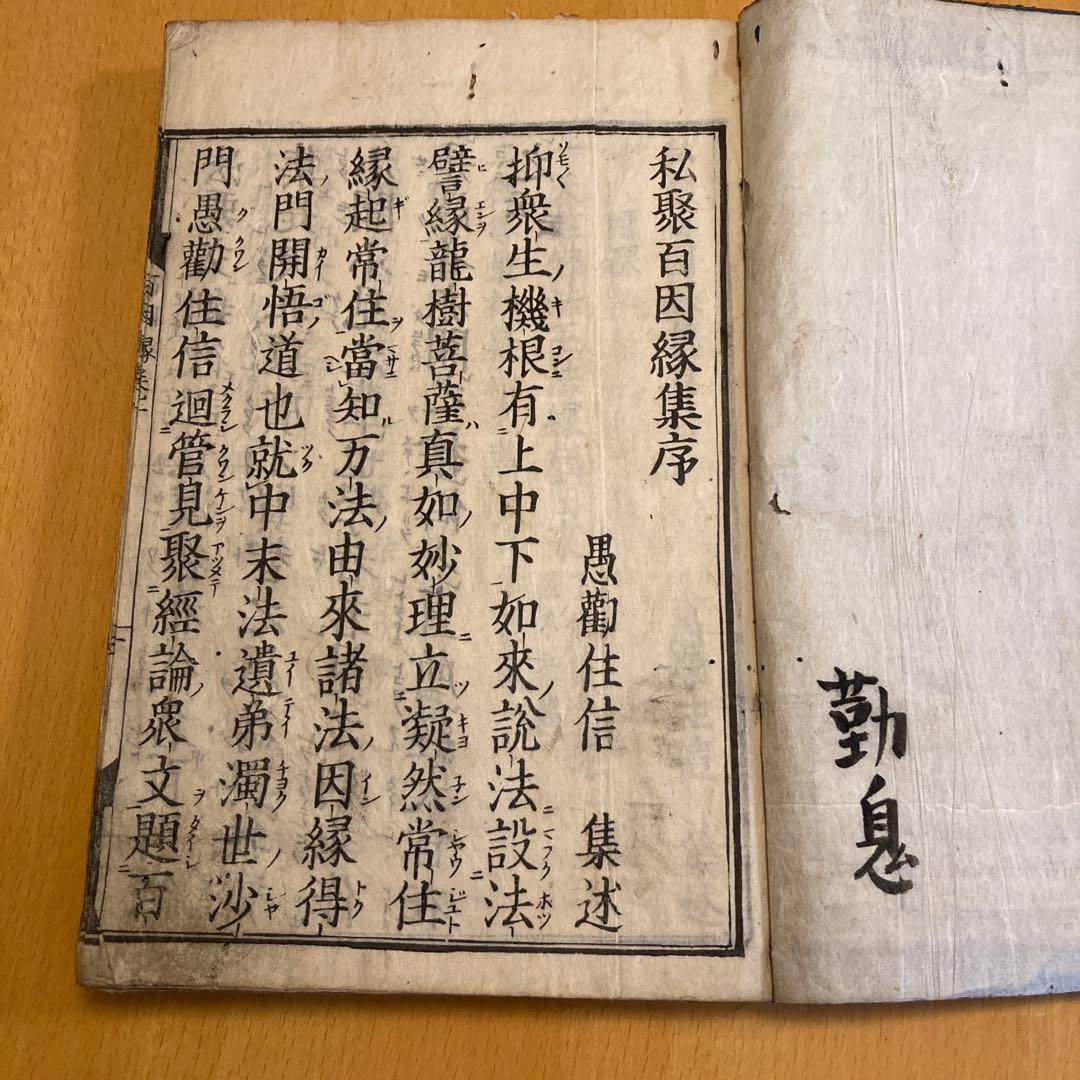 勤息
私聚百因縁集序
愚勸住信 集述
抑衆生機根有上中下如來說法設法
譬縁龍樹菩薩真如妙理立凝然常住
縁起常住當知万法由來諸法因縁得
法門開悟道也就中末法遺弟濁世沙
門愚勸住信迴管見聚經論衆文題百